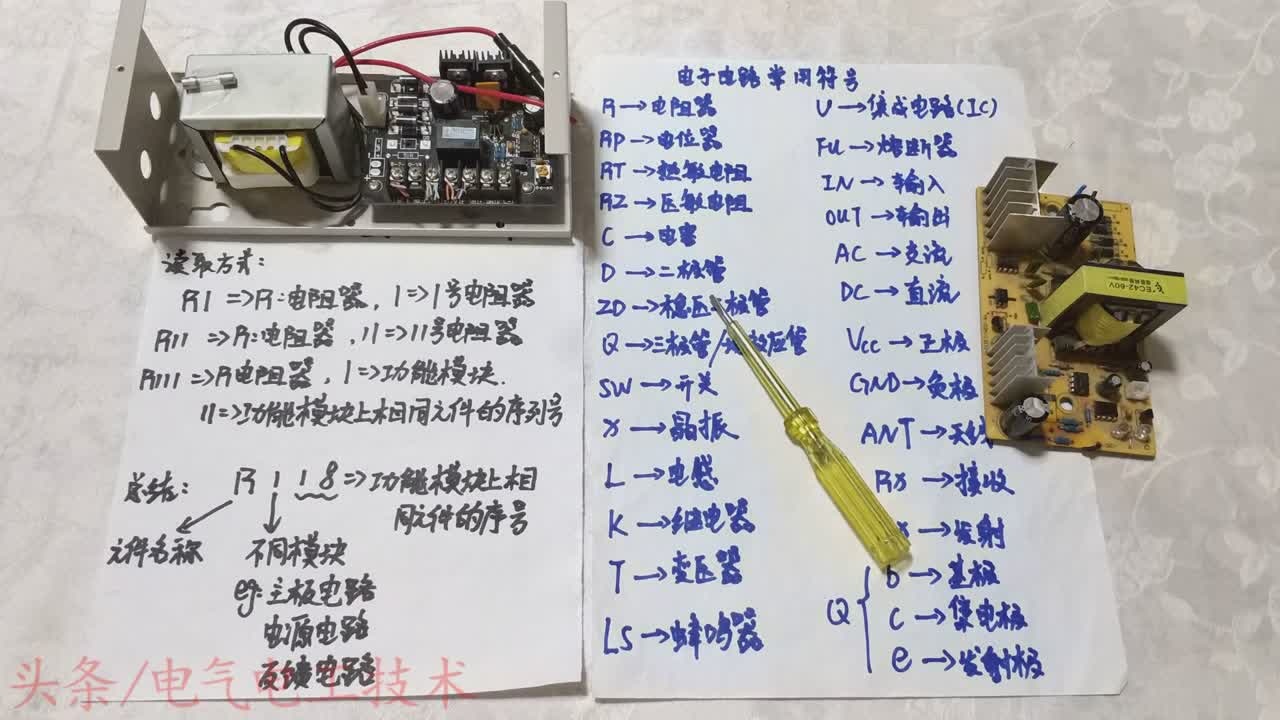 读取方式:
R1 => R:电阻器, 1=>1号电阻器
R11 => R:电阻器, 11=>11号电阻器
R111 => R电阻器, 1=>功能模块.
11=>功能模块上相同元件的序列号
总结: R 1 1 8 => 功能模块上相
同元件的序号
元件名称 不同模块
eg:主板电路
电源电路
反馈电路
电子电路常用符号
R→电阻器
RP→电位器
RT→热敏电阻
RZ→压敏电阻
C→电容
D→二极管
ZD→稳压 极管
Q→三极管/ 应管
SW→开关
X→晶振
L→电感
K→继电器
T→变压器
LS→蜂鸣器
U→集成电路(IC)
FU→熔断器
IN→输入
OUT→输出
AC→交流
DC→直流
Vcc→正极
GND→负极
ANT→天线
RX→接收
X→发射
Q
b→基极
C→集电极
e→发射极
EC42-60V
头条/电气电工技术